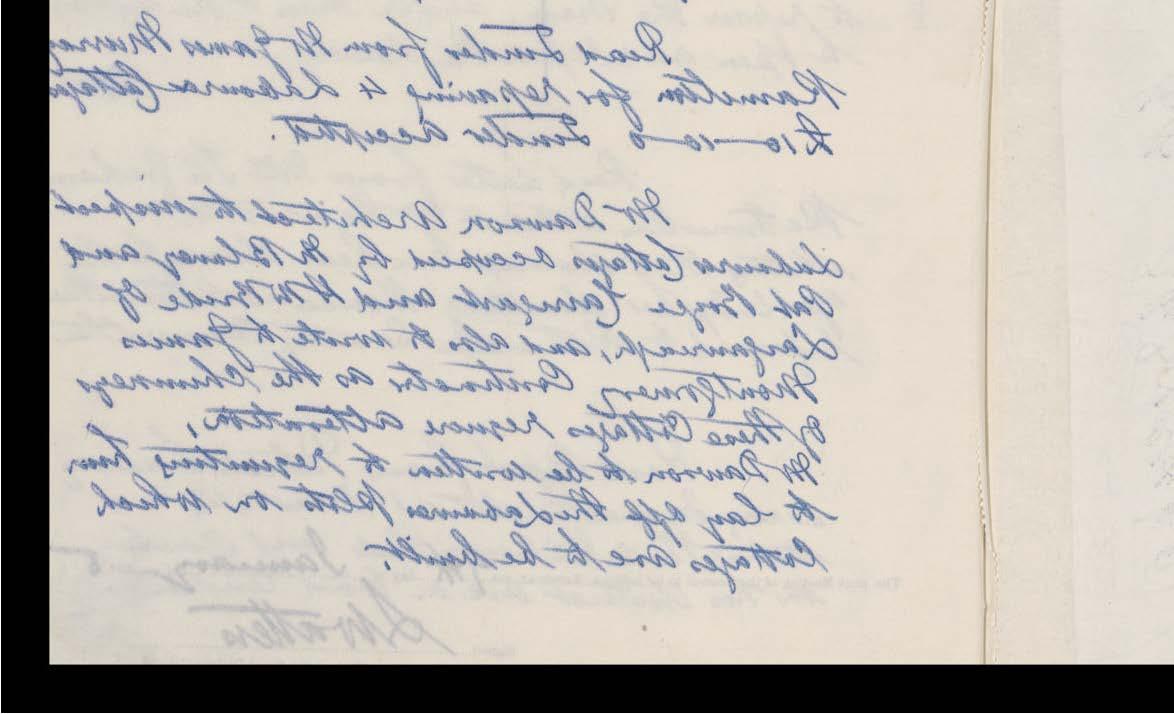 Read Tender from Mr James Murray
Hamilton for repairing 4 Labourers Cottages
£10-10-0 Tender accepted.
Mr Dawson Architect to inspect
Labourers Cottages occupied by and
Pat Boyce Carrigart and H McBride of
Largynreagh, and also to wrote to James
Montgomery Contractor as the Chimneys
of these Cottages require alteration,
Mr Dawson to be written to requesting him
to lay off the Labourers plots on which
Cottages are to be built.
January 5